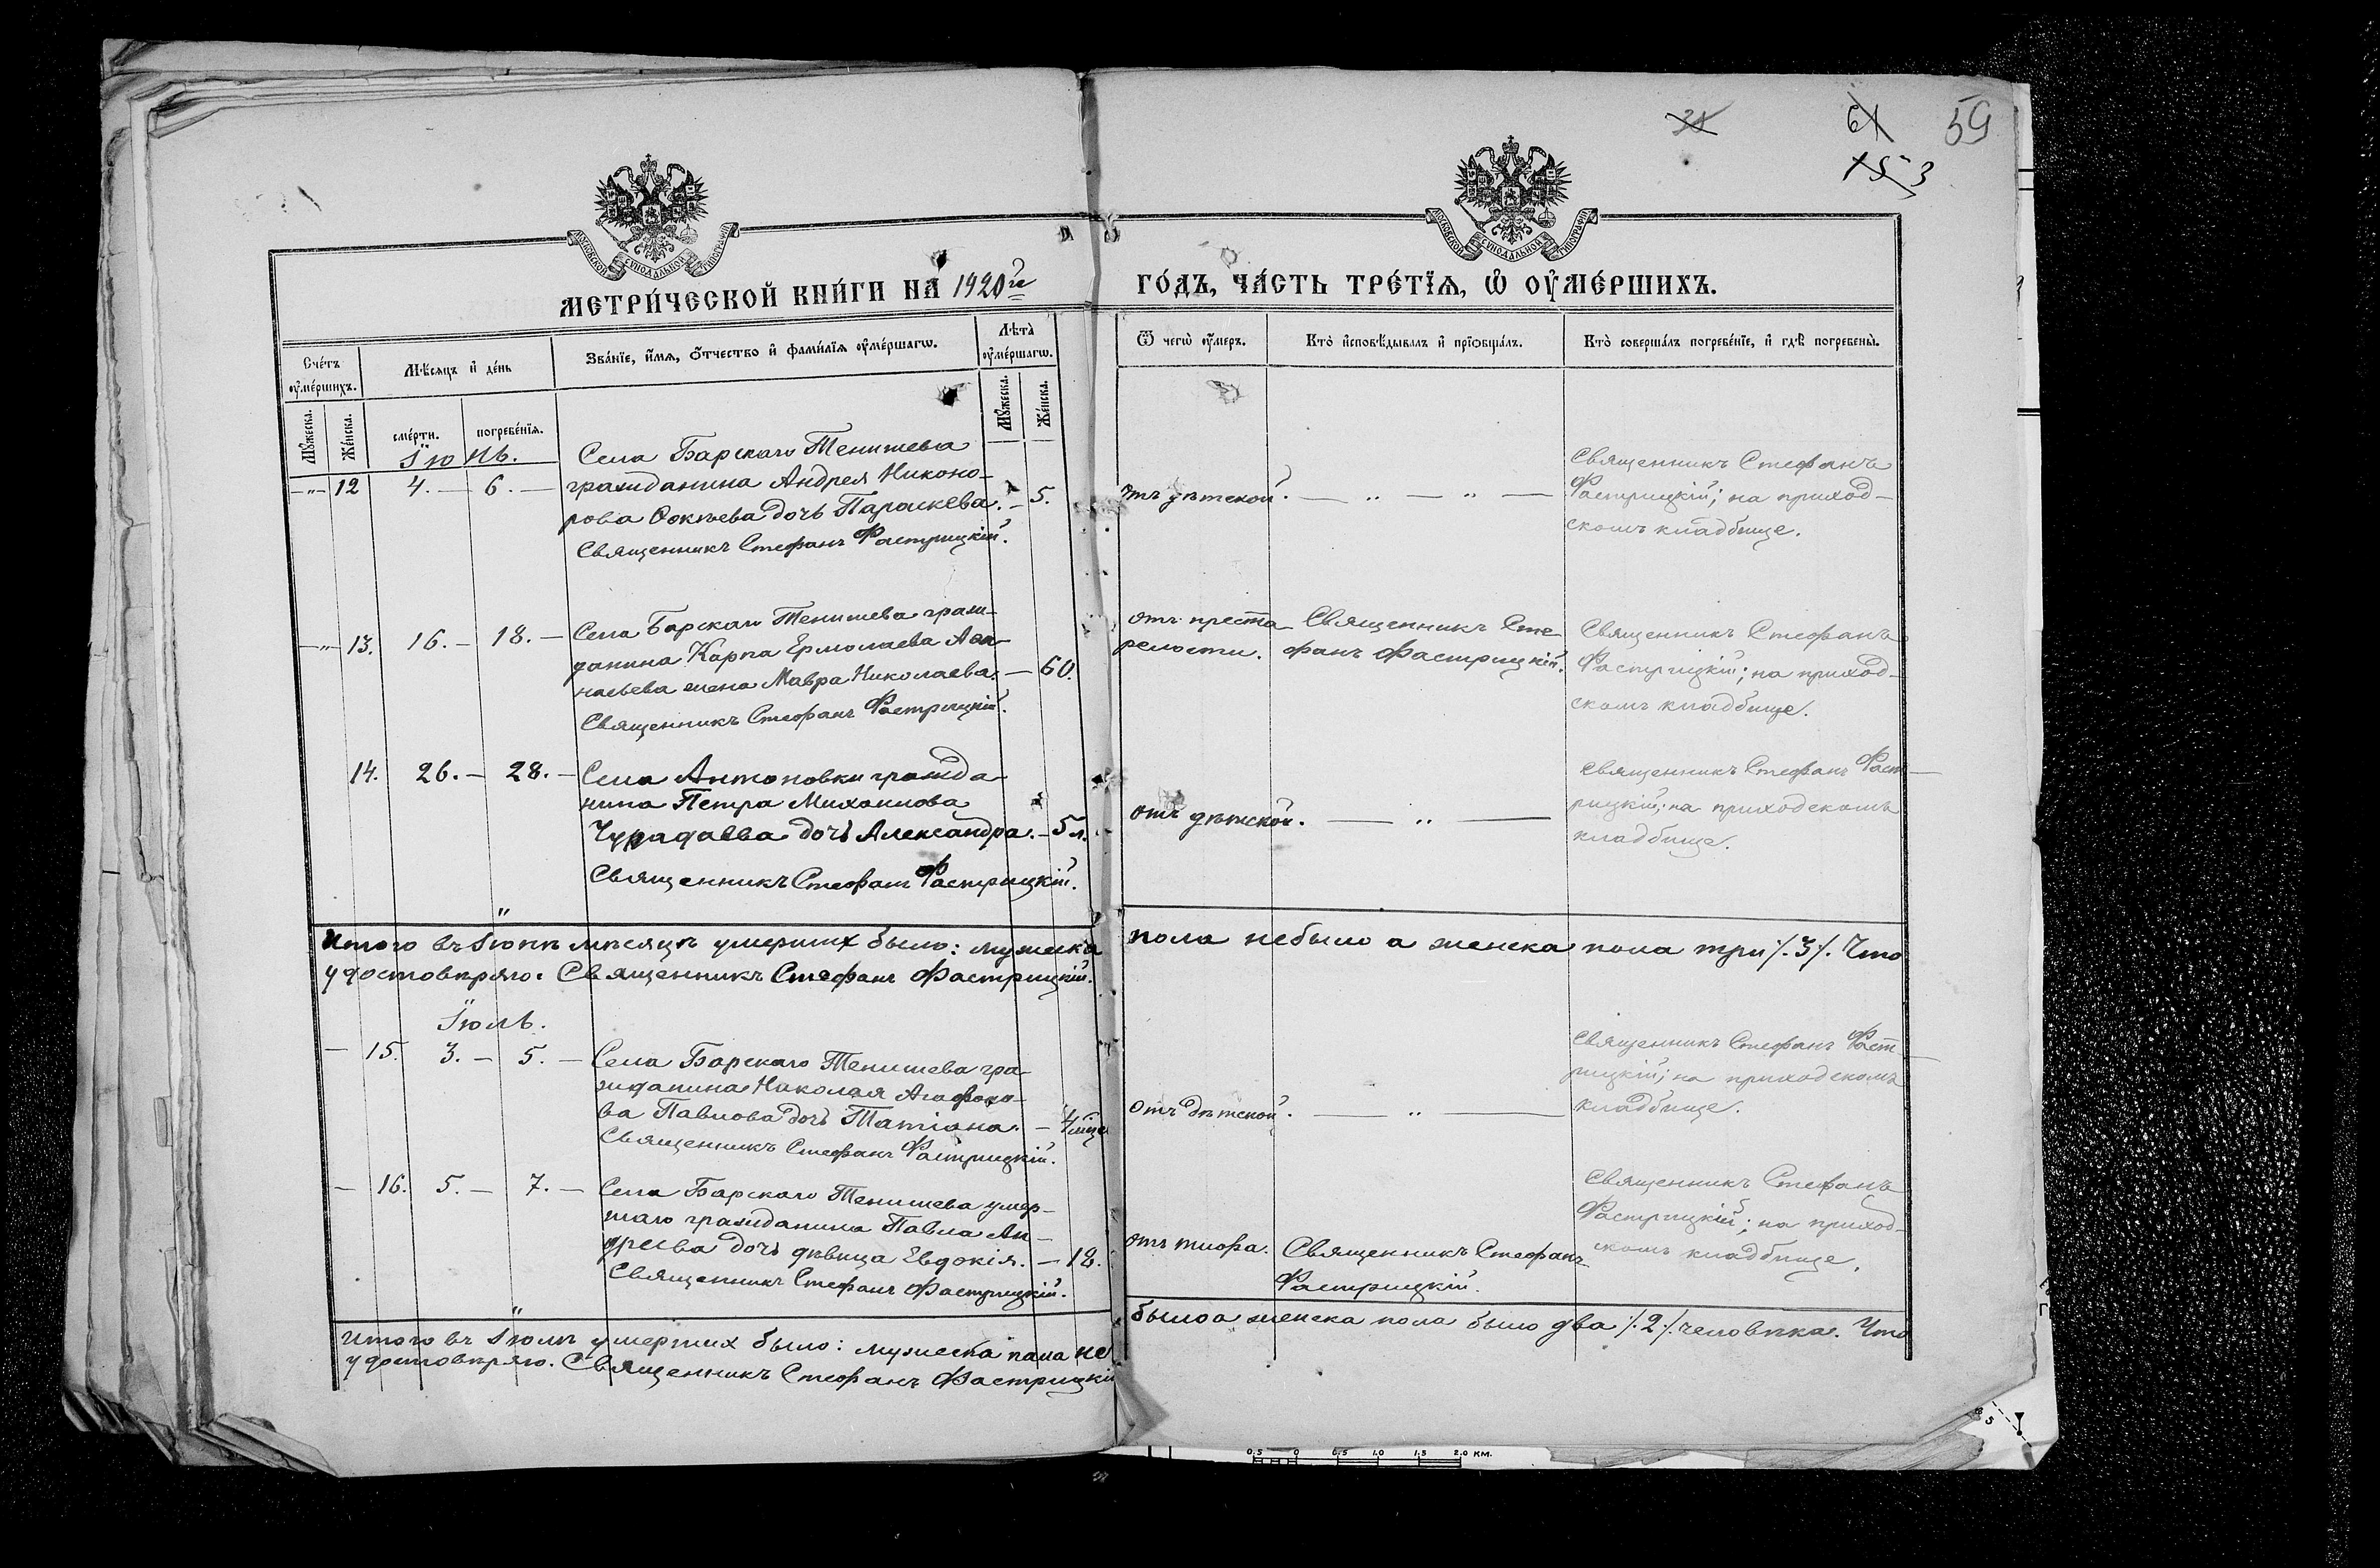 31
61
59
153
МОСКОВСКОЙ СѴНОДАЛЬНОЙ ТИПОГРАФІИ
МОСКОВСКОЙ СѴНОДАЛЬНОЙ ТИПОГРАФІИ
МЕТРИ́ЧЕСКОЙ КНИ́ГИ НА 1920й
ГО́ДЪ, ЧА́СТЬ ТРЕ́ТЇѦ, Ѡ҆ ОУ҆МЕ́РШИХЪ.
Сче́тъ оу҆ме́ршихъ.
Мѣ́сяцъ и҆ де́нь
Зва́нїе, и҆́мѧ, ѻ҆́тчество и҆ фами́лїѧ оу҆ме́ршагѡ.
Лѣ́та оу҆ме́ршагѡ.
Ѿ чегѡ̀ оу҆́меръ.
Кто̀ и҆сповѣ́дывалъ и҆ прїѡбща́лъ.
Кто̀ соверша́лъ погребе́нїе, и҆ гдѣ̀ погребены̀.
Мꙋ́жеска.
Же́нска.
сме́рти.
погребе́нїѧ.
Мꙋ́жеска.
Же́нска.
Іюнь.
Села Барскаго Тенишева
-"- 12 4. — 6. — гражданина Андрея Никоно-
рова Фокѣева дочь Параскева. — 5.
Священникъ Стефанъ Фастрицкій.
отъ дѣтской. — " — " —
Священникъ Стефанъ
Фастрицкій; на приход-
скомъ кладбище.
-"- 13. 16. — 18. — Села Барскаго Тенишева граж-
данина Карпа Ермолаева Афа-
насьева жена Мавра Николаева. — 60.
Священникъ Стефанъ Фастрицкій.
отъ преста-
релости.
Священникъ Сте-
фанъ Фастрицкій.
Священникъ Стефанъ
Фастрицкій; на приход-
скомъ кладбище.
14. 26. — 28. — Села Антоновки гражда-
нина Петра Михаилова
Чурадаева дочь Александра. — 5 л.
Священникъ Стефанъ Фастрицкій.
отъ дѣтской. — " —
Священникъ Стефанъ Фаст-
рицкій; на приходскомъ
кладбище.
Итого въ Іюнѣ мѣсяцѣ умершихъ было: мужска
пола небыло а женска пола три /.3/. Что
удостовѣряю. Священникъ Стефанъ Фастрицкій.
Іюль.
— 15. 3. — 5. — Села Барскаго Тенишева гра-
жданина Николая Агафоно-
ва Павлова дочь Татіана. —
Священникъ Стефанъ Фастрицкій.
отъ дѣтской. — " —
Священникъ Стефанъ Фаст-
рицкій; на приходскомъ
кладбище.
— 16. 5. — 7. — Села Барскаго Тенишева умер-
шаго гражданина Павла Ан-
дреева дочь дѣвица Евдокія. — 18.
Священникъ Стефанъ Фастрицкій.
отъ тифа.
Священникъ Стефанъ
Фастрицкій.
Священникъ Стефанъ
Фастрицкій; на приход-
скомъ кладбище.
Итого въ Іюлѣ умершихъ было: мужеска пола не
было а женска пола было два /.2/. человѣка. Что
удостовѣряю. Священникъ Стефанъ Фастрицкій
0.5 0 0.5 1.0 1.5 2.0 КМ.